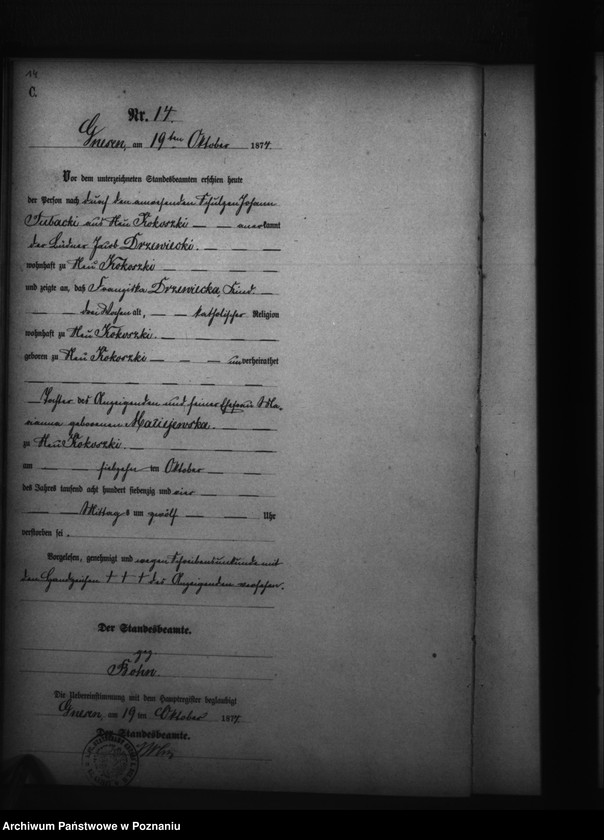 14.
C.
Nr. 14.
Gnesen, am 19ten Oktober 1874
Vor dem unterzeichneten Standesbeamten erschien heute
der Person nach durch den anwesenden Schulzen Johann
und Neu Kokoszki anerkannt
der Jacob Drzewiecki.
wohnhaft zu Neu Kokoszki
und zeigte an, daß Franziska Drzewiecka, Kind.
drei Wochen alt, katholischer Religion
wohnhaft zu Neu Kokoszki.
geboren zu Neu Kokoszki unverheirathet
Tochter des Anzeigenden und seiner Ehefrau Ma-
rianna geborenen Maciejewska.
zu Neu Kokoszki.
am siebzehn ten Oktober
des Jahres tausend acht hundert siebenzig und vier
Mittags um zwölf Uhr
verstorben sei.
Vorgelesen, genehmigt und wegen Schreibensunkunde mit
dem Handzeichen + + + des Anzeigenden versehen.
Der Standesbeamte.
gez
Die Uebereinstimmung mit dem Hauptregister beglaubigt
Gnesen, am 19 ten Oktober 1874
Der Standesbeamte.
Archiwum Państwowe w Poznaniu